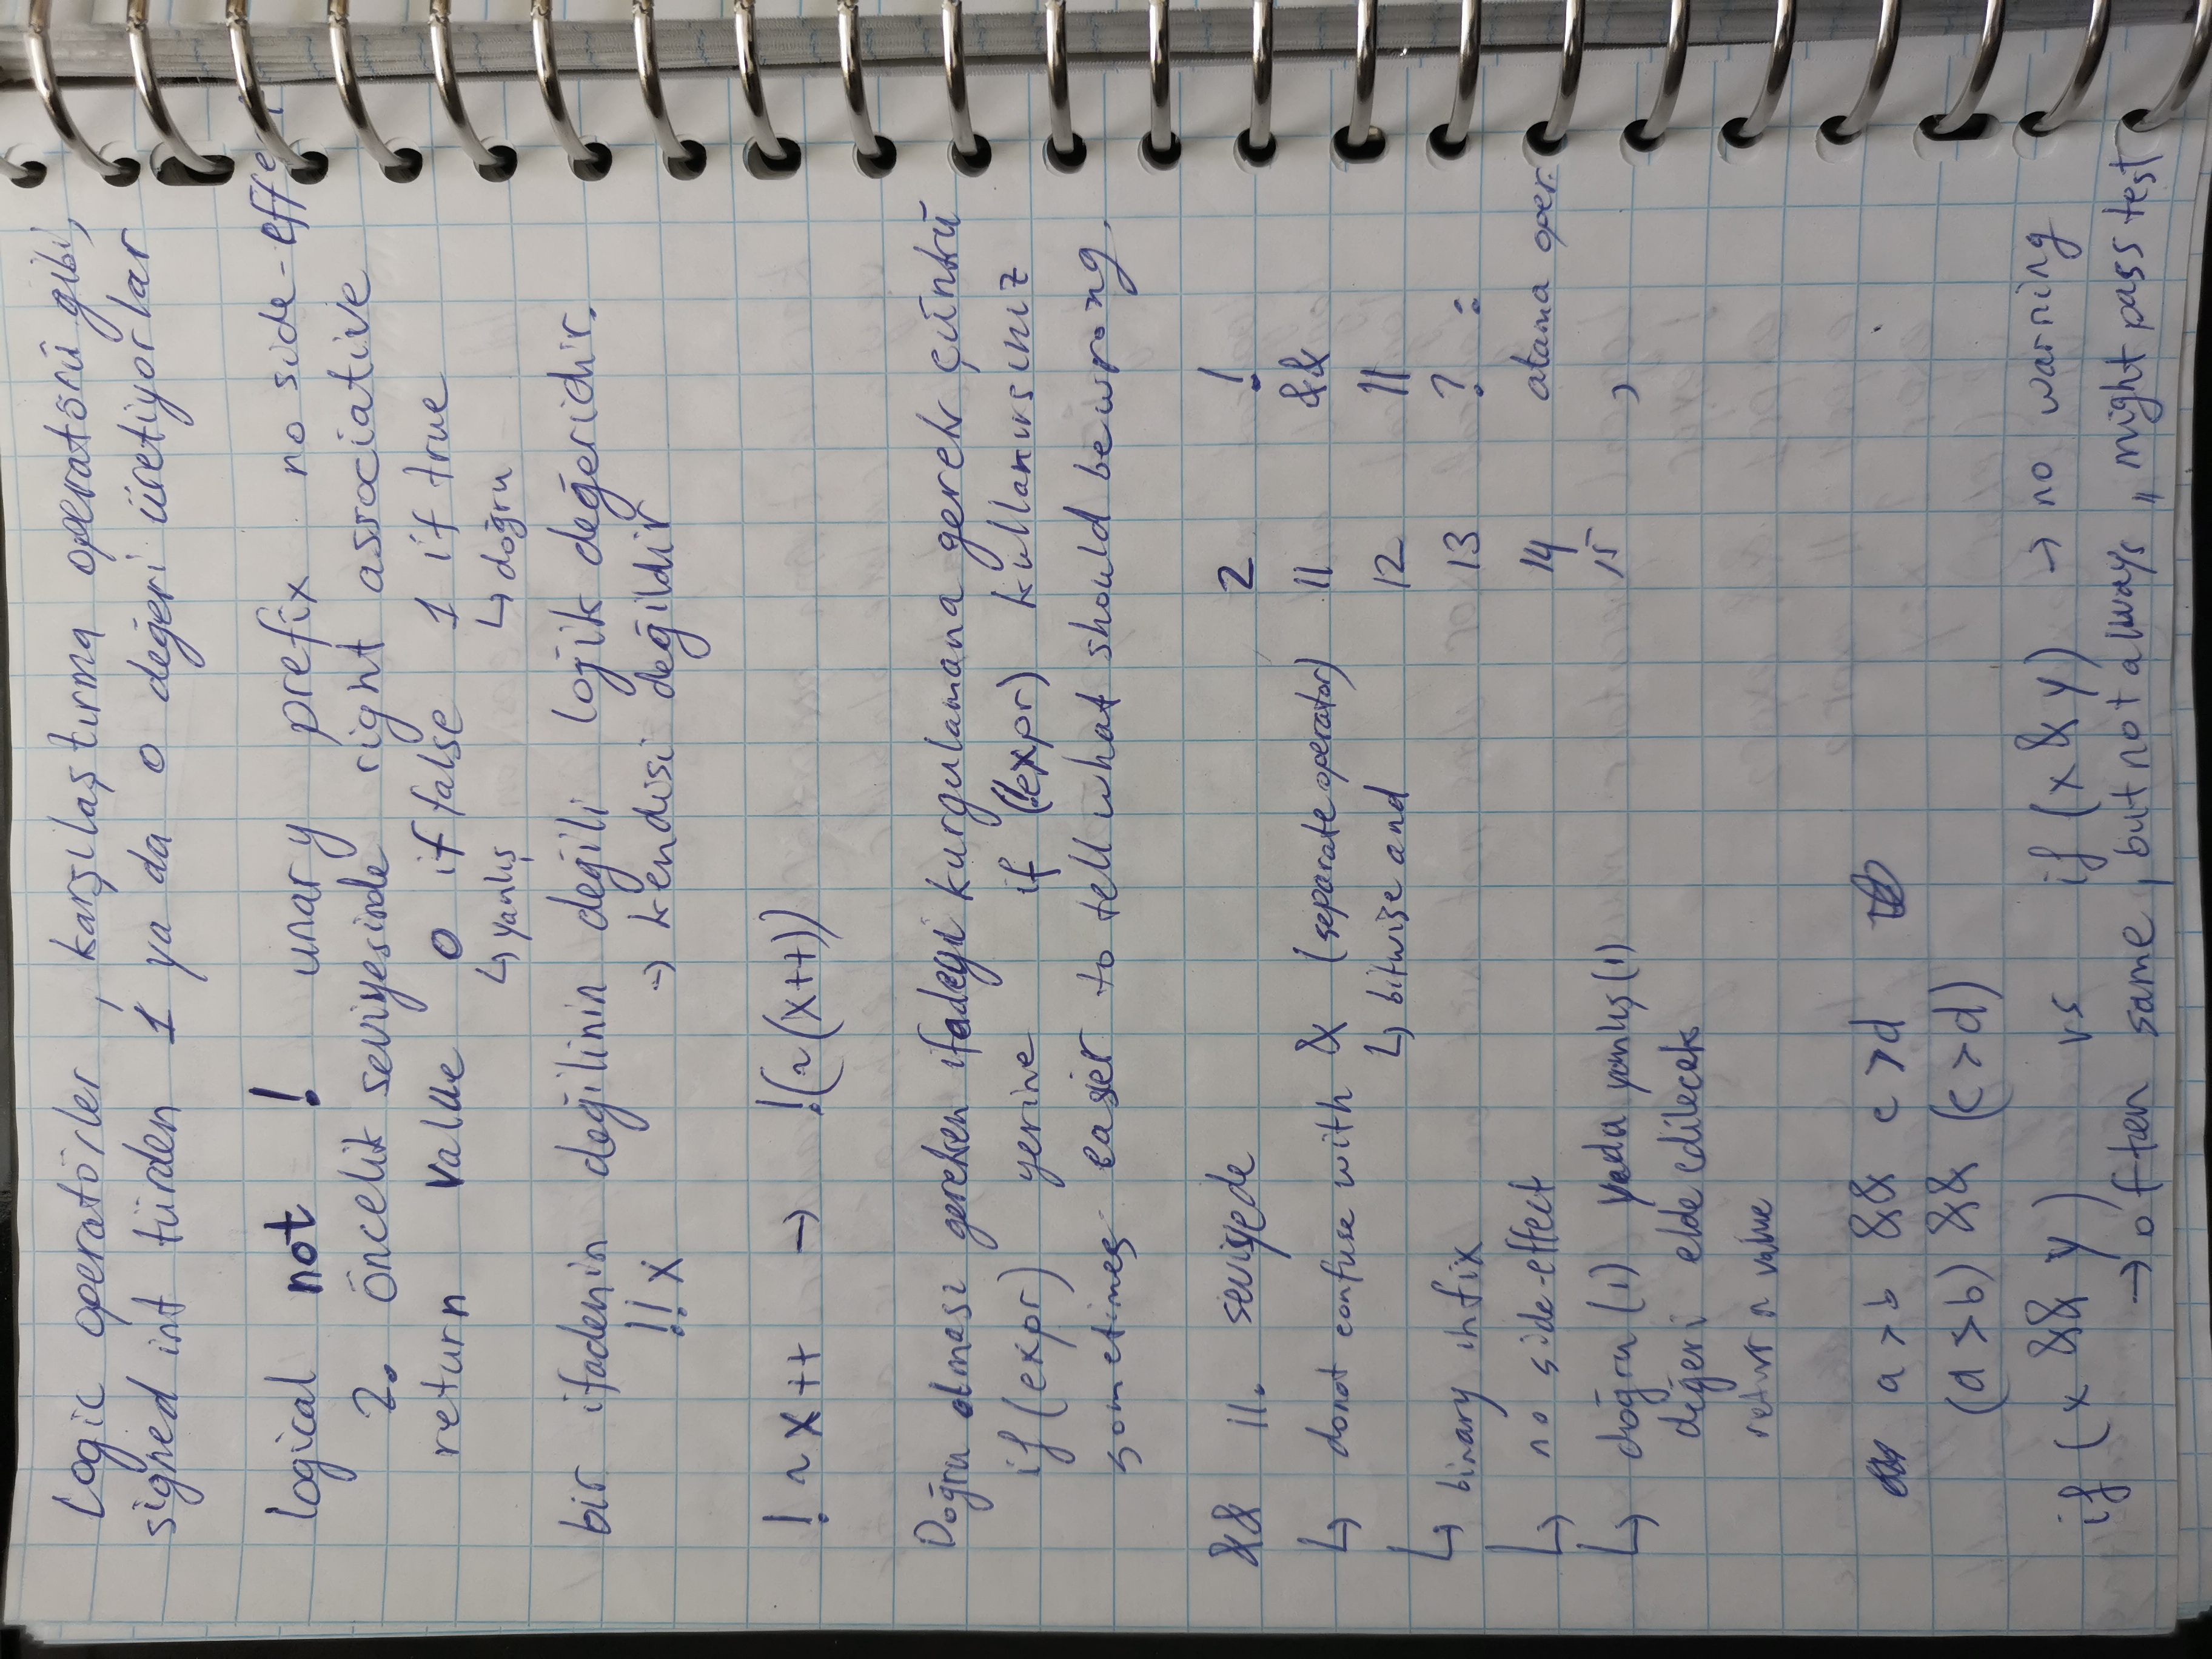 Logic operatörler , karşılaştırma operatörü gibi,
signed int türden 1 ya da 0 değeri üretiyorlar
logical not ! unary prefix no side-effect
2. öncelik seviyesinde right associative
return value 0 if false 1 if true
↳ yanlış ↳ doğru
bir ifadenin değilinin değili lojik değeridir.
!!x → kendisi değildir
! ~ x ++ → !(~(x++))
Doğru olması gereken ifadeyi kurgulamana gerek çünkü
if (expr) yerine if (!expr) kullanırsınız
sometimes easier to tell what should be wrong.
&& 11. seviyede
↳ donot confuse with & (separate operator)
↳ bitwise and
↳ binary infix
↳ no side-effect
↳ doğru (1) yada yanlış (1)
değeri elde edilecek
return value
2 !
11 &&
12 ||
13 ? :
14 atama oper.
15 ,
a > b && c > d
(a > b) && (c > d)
if (x && y) vs if (x & y) → no warning
→ often same, but not always ,, might pass test